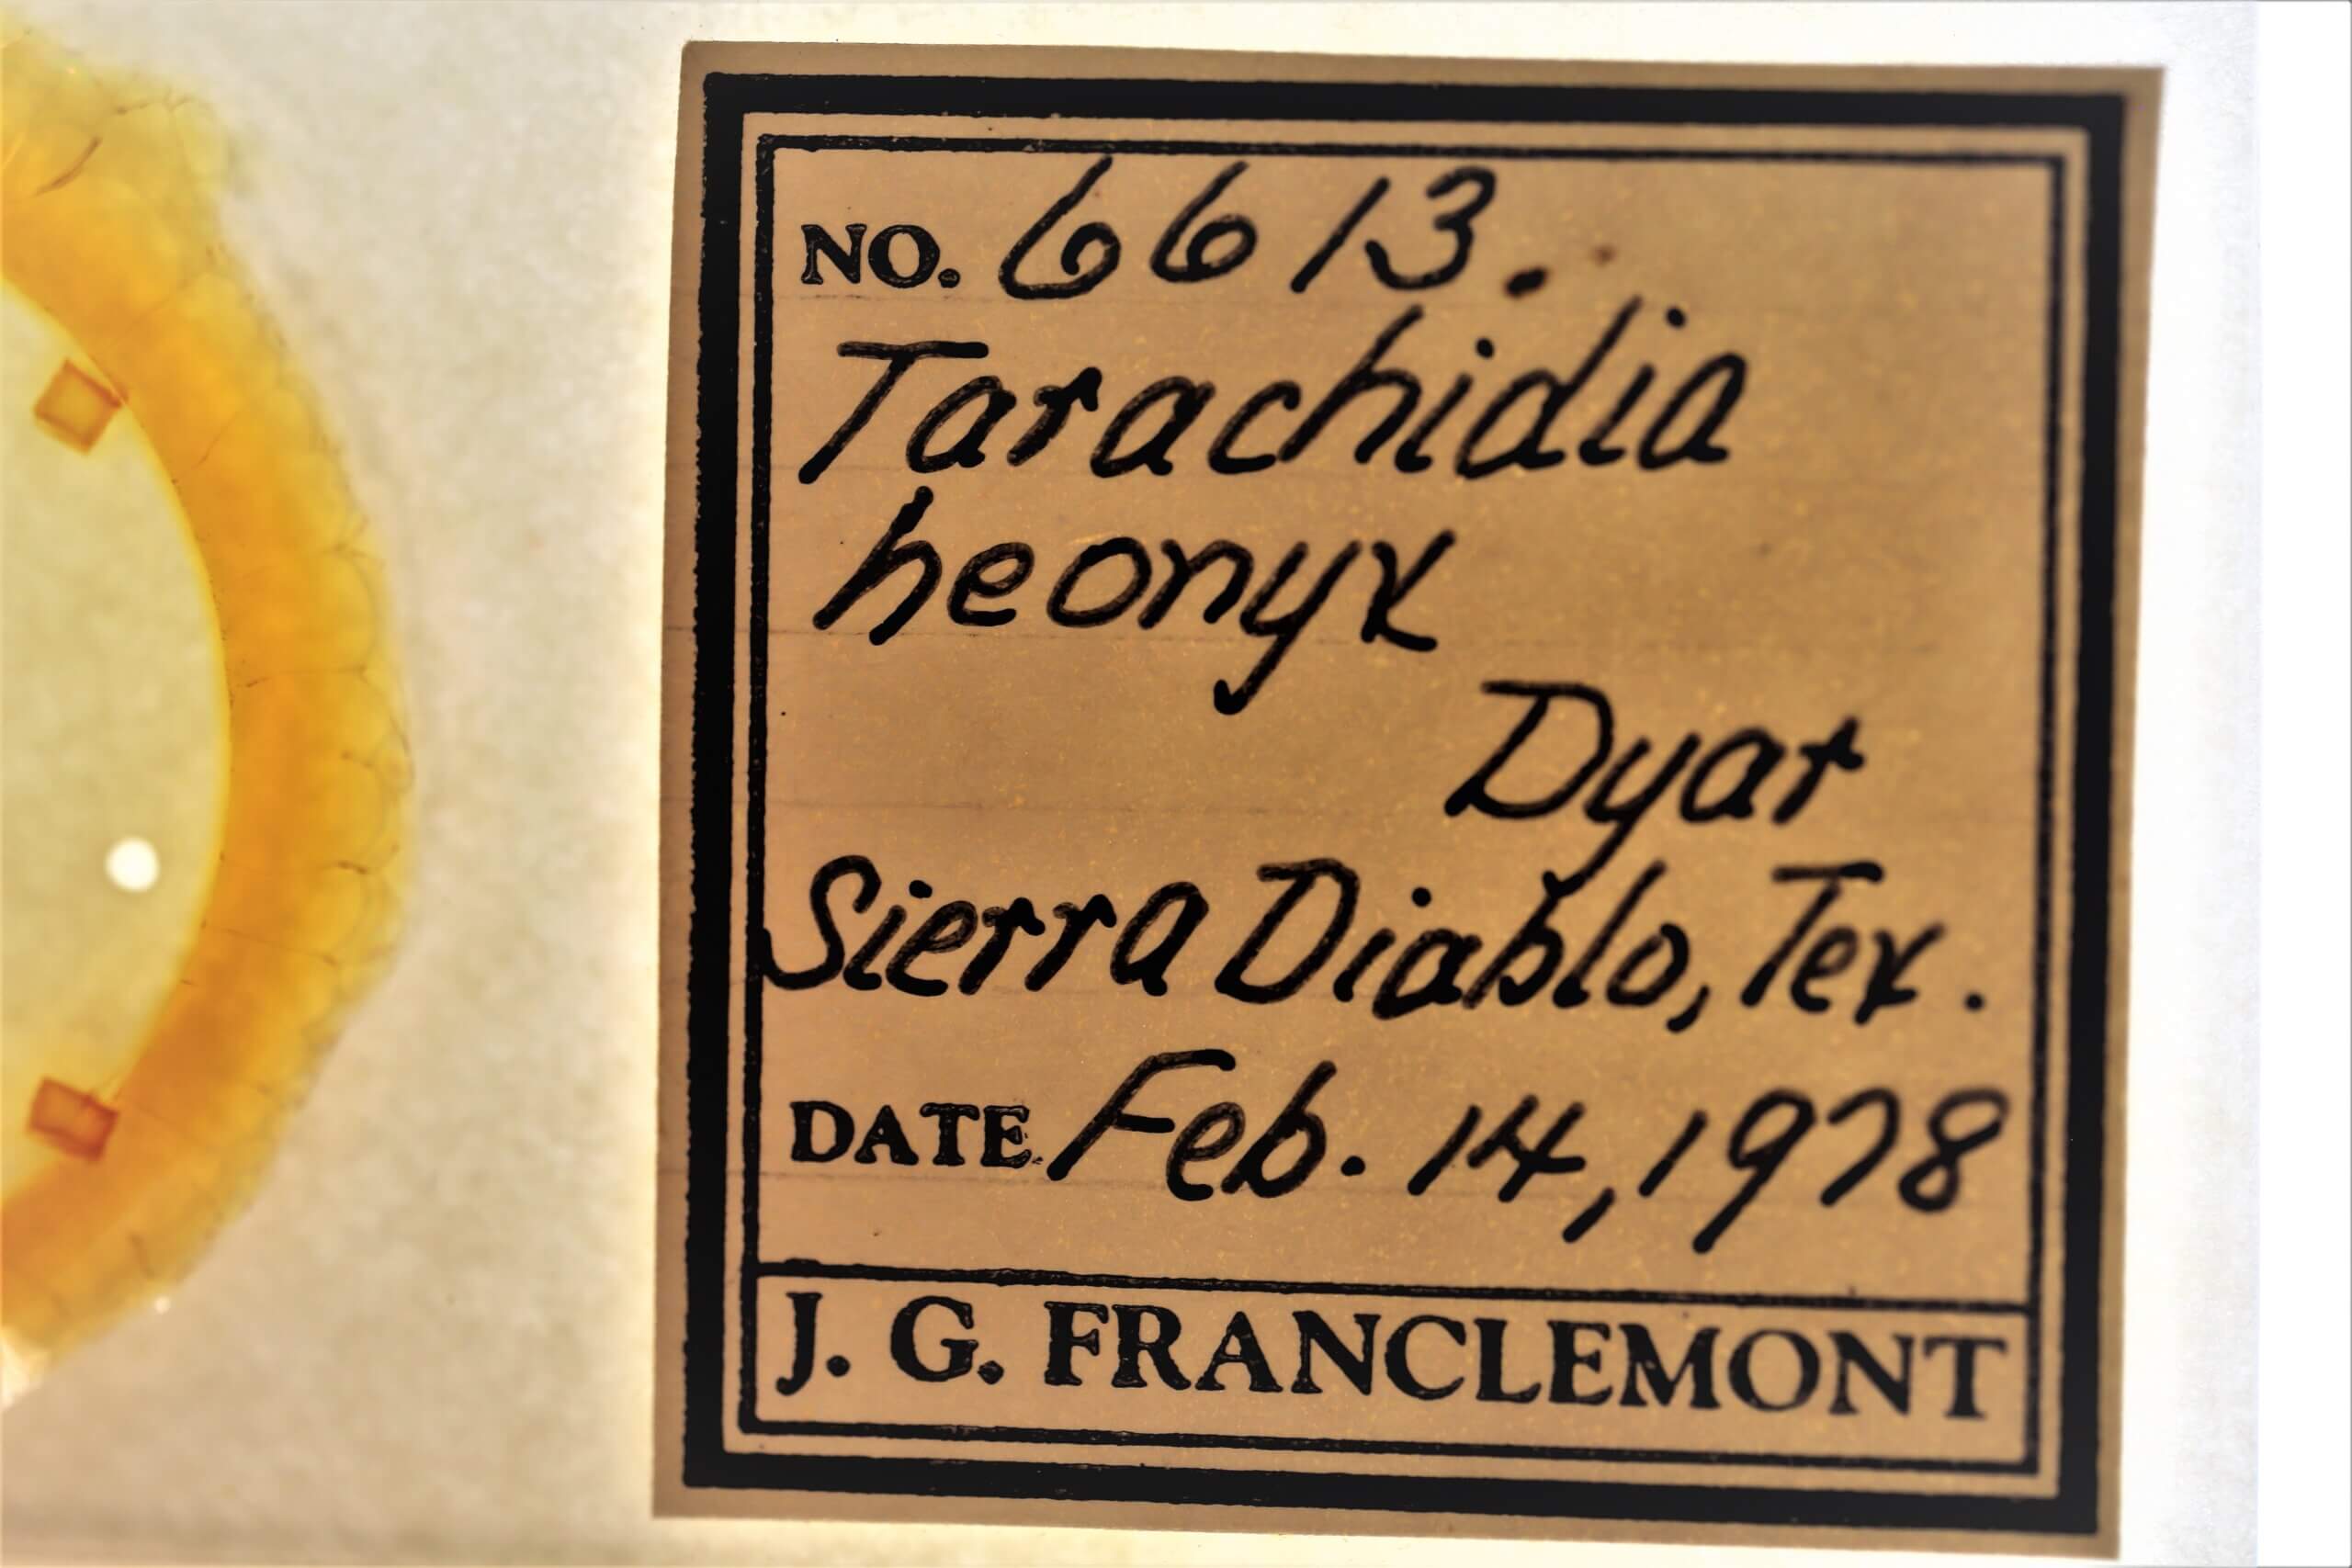 NO. 6613.
Tarachidia
heonyx
Dyar
Sierra Diablo, Tex.
DATE Feb. 14, 1978
J. G. FRANCLEMONT